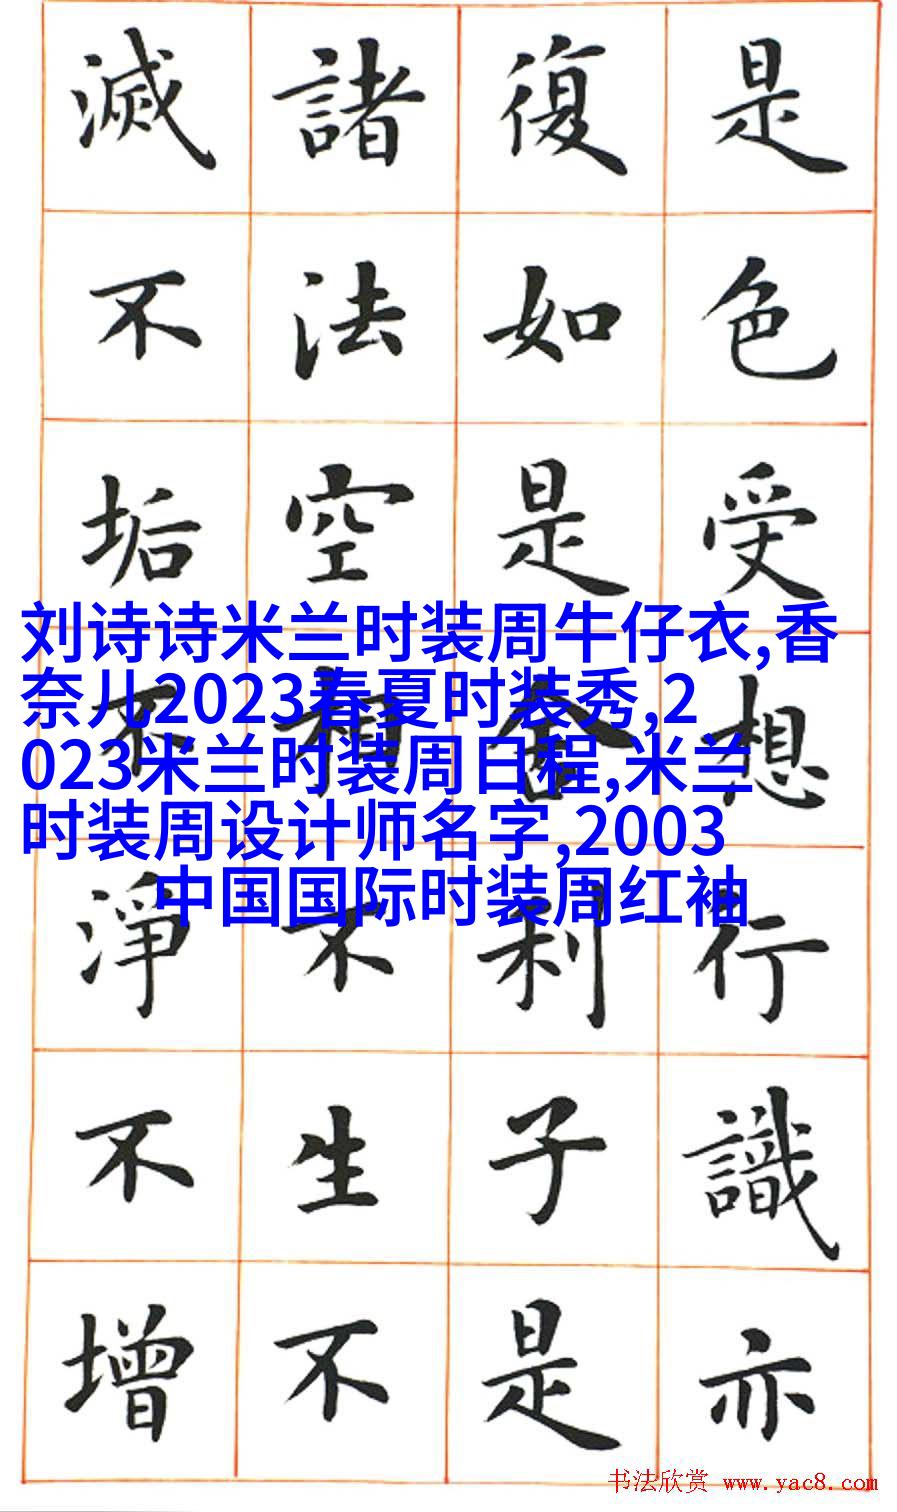 是色受想行識亦
復如是舍利子是
諸法空相不生不
滅不垢不淨不增
刘诗诗米兰时装周牛仔衣,香
奈儿2023春夏时装秀,2
023米兰时装周日程,米兰
时装周设计师名字,2003
中国国际时装周红袖
书法欣赏 www.yac8.com